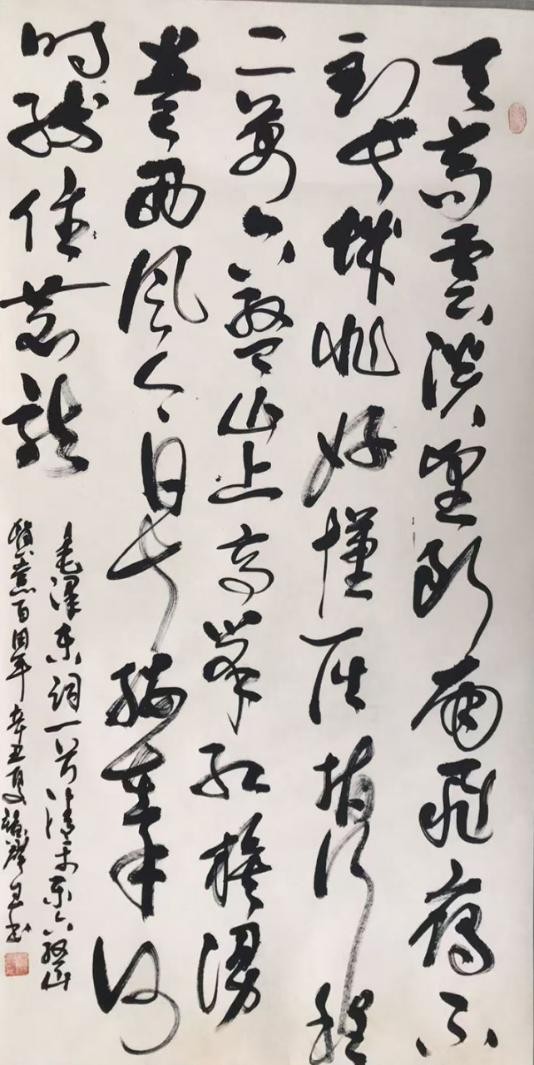 天高雲淡望斷南飛雁不
到长城非好漢屈指行程
二萬六盤山上高峯紅旗漫
卷西風今日长纓在手何
时縛住蒼龍
毛澤东詞一首清平乐六盤山
黨百周年辛丑夏书